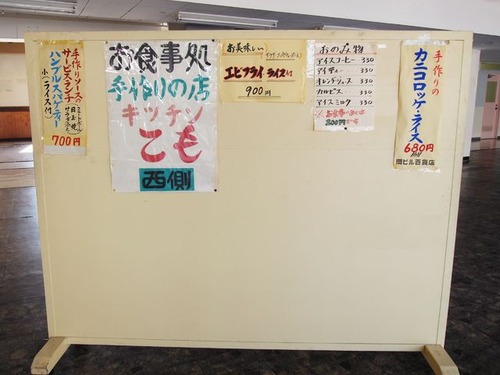 手作りソースの
サービスランチ
ハンブルスパゲティー
小(ライス付)
700円
お食事処
手作りの店
キッチン
こも
西側
お美味しい
エビフライ ライス付
900円
おのみ物
アイスコーヒー 330
アイスティー 330
オレンジジュース 330
カルピス 330
アイスミルク 330
200円
手作りの
カニコロッケ・ライス
680円
岡ビル百貨店